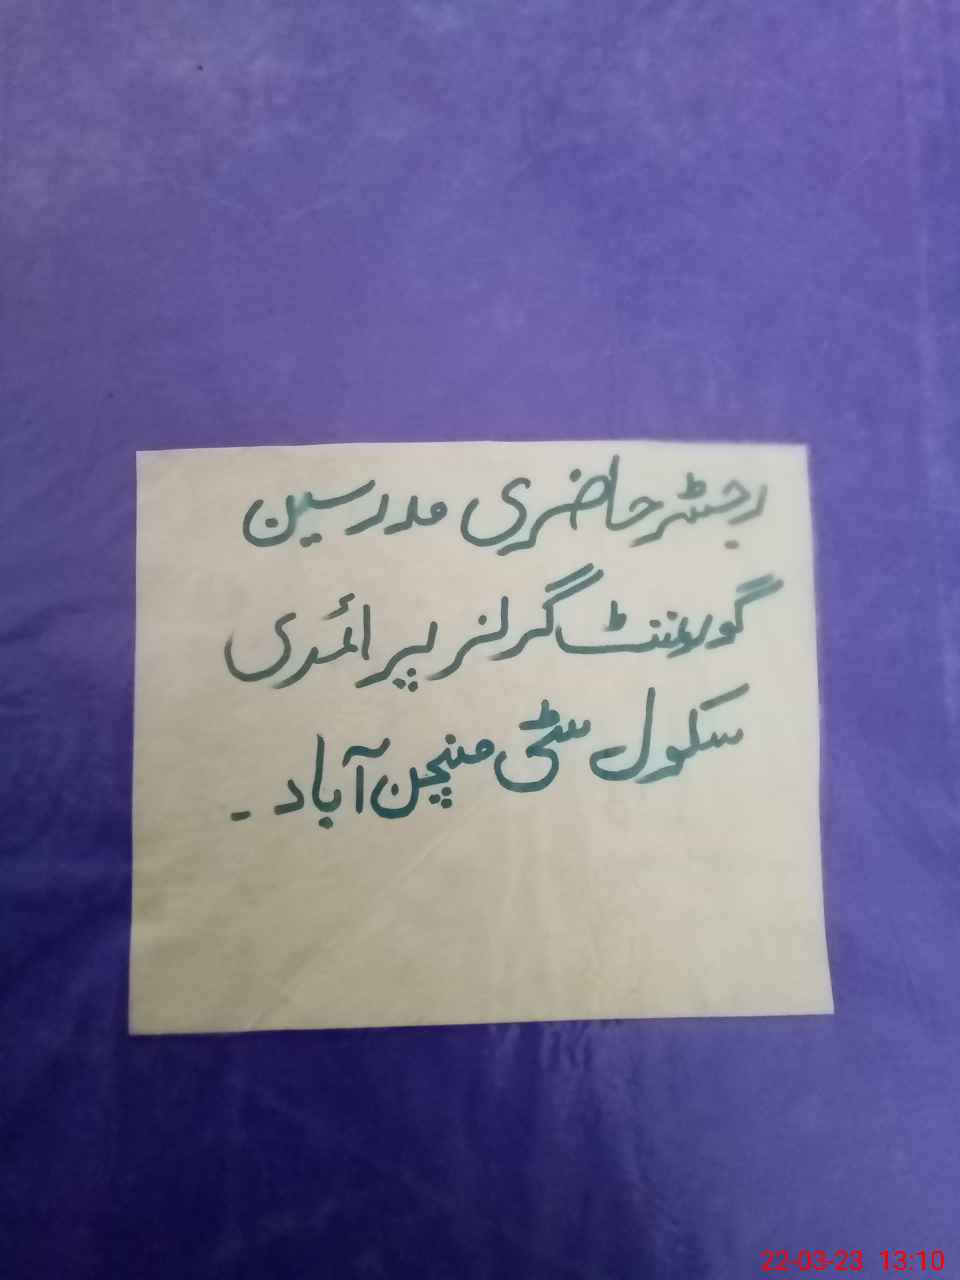 رجسٹر حاضری مدرسین
گورنمنٹ گرلز پرائمری
سکول سٹی منچن آباد ۔
22-03-23 13:10